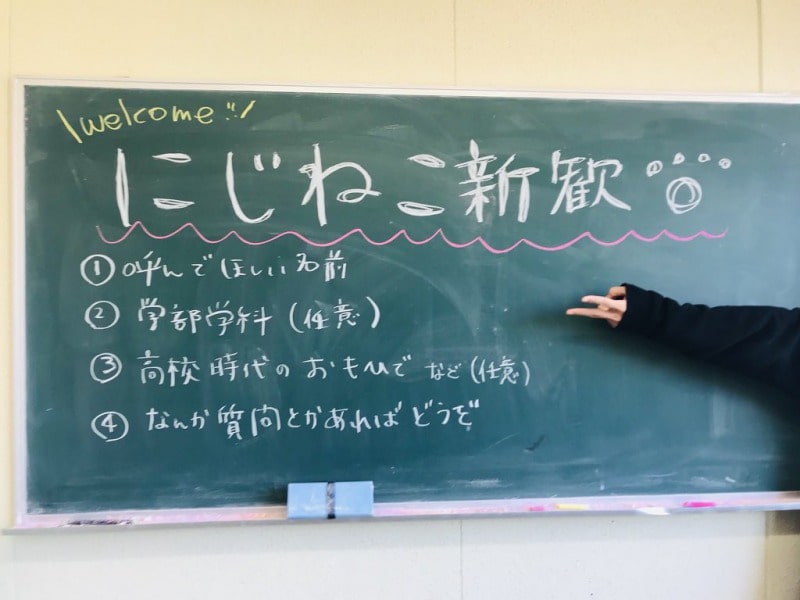 \welcome!!/
にじねこ新歓
① 呼んでほしい名前
② 学部学科 (任意)
③ 高校時代のおもひで など (任意)
④ なんか質問とかあればどうぞ